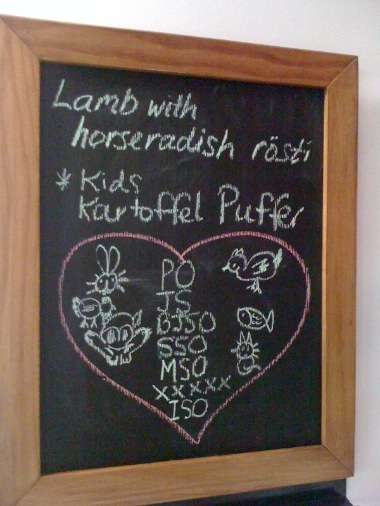 Lamb with
horseradish rösti
* Kids
Kartoffel Puffer
PO
JS
BJSO
SSO
MSO
xxxxx
ISO